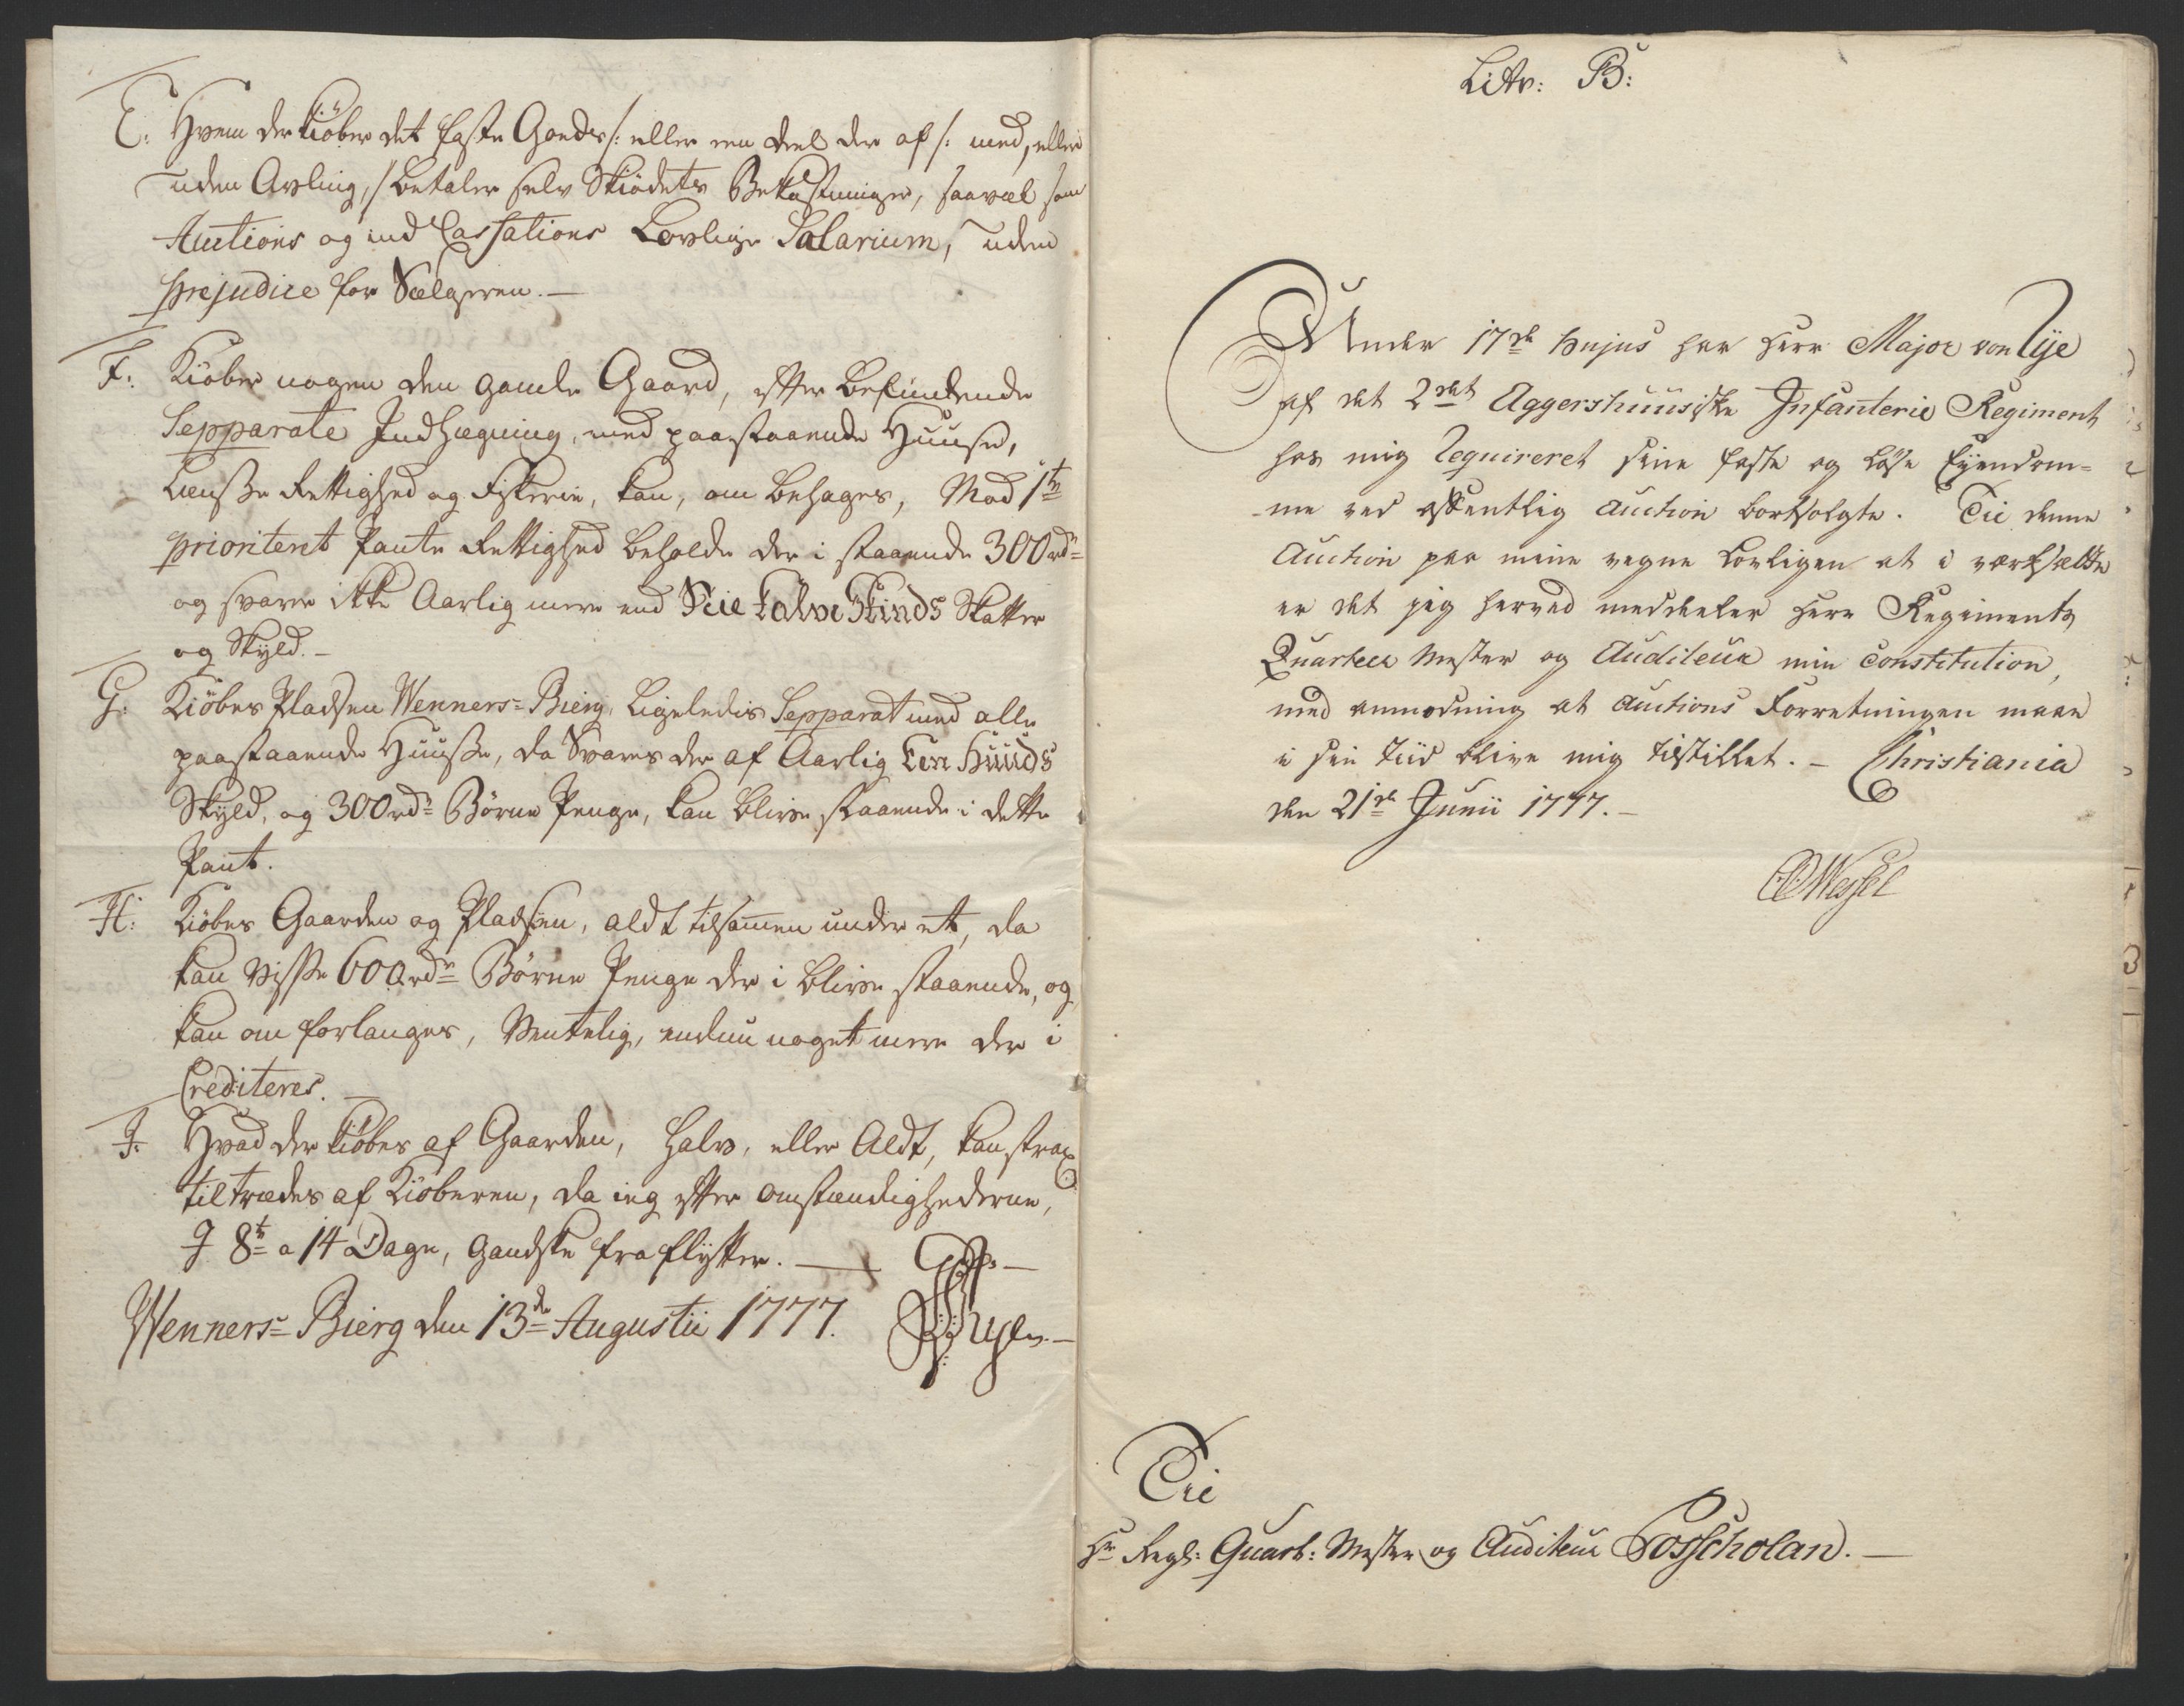 E: Hvem der Kiöber det faste Goeds /: eller een deel der af /: med, eller
uden Avling, / betaler selv Skiödets Bekostninger, saavel som
Auctions og ind Cassations Lovlige Salarium, uden
prejudice for Sælgeren. —
F: Kiöber nogen den gamle Gaard, efter befindende
Sepparate Indhægning, med paastaaende Huuse,
Lænsse Rettighed og Fiskerie, kan, om behages, Mod 1te
prioritent Pante Rettighed beholde der i staaende 300rdr
og svare ikke Aarlig mere end Skind Skatter
og Skyld. —
G: Kiöbes Pladsen Wenners=Bierg, Ligeledes Sepparat med alle
paastaaende Huusse, da Svares der af Aarlig Een Huuds
Skyld, og 300rdr Börne Penge, kan blive staaende i dette
Pant.
H: Kiöbes Gaarden og Pladsen, aldt tilsamen under et, da
kan visse 600rdr Börne Penge der i blive staaende, og
kan om forlanges, Ventelig, endnu noget mere der i
Crediteres. —
I: Hvad der Kiöbes af Gaarden, halv, eller Aldt, kan strax
tiltrædes af Kiöberen, da ieg efter omstændighederne,
I 8te a 14 Dage, gandske fra flytter. —
Wenners=Bierg den 13de Augustii 1777.
Litr: B:
Under 17de hujus har Herr Major von Tÿe
af det 2det Aggershuusiske Infanterie Regiment
hos mig requireret sine faste og löse Eÿendom=
=me ved offentlig Auction bortsolgte. Til denne
Auction paa mine vegne Lovligen at i værksætte
er det jeg herved meddeeler Herr Regiments
Quarteer Mester og Auditeur min Constitution,
med anmodning at Auctions Forretningen maae
i sin tiid blive mig tilstillet. — Christiania
den 21de Junii 1777. —
Wessel
Til
Hr Regts: Quart: Mester og Auditeur Losscholan. —